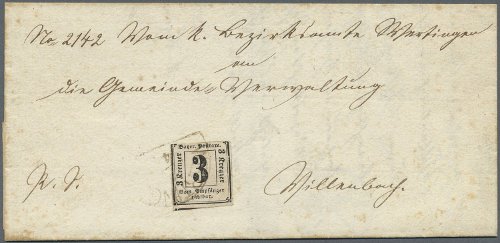 No 2142 Vom k. Bezirksamte Wertingen
an
die Gemeinde-Verwaltung
Bayer. Posttaxe
3 Kreuzer
3
3 Kreuzer
Vom Empfänger
zahlbar.
R. S.
Villenbach.